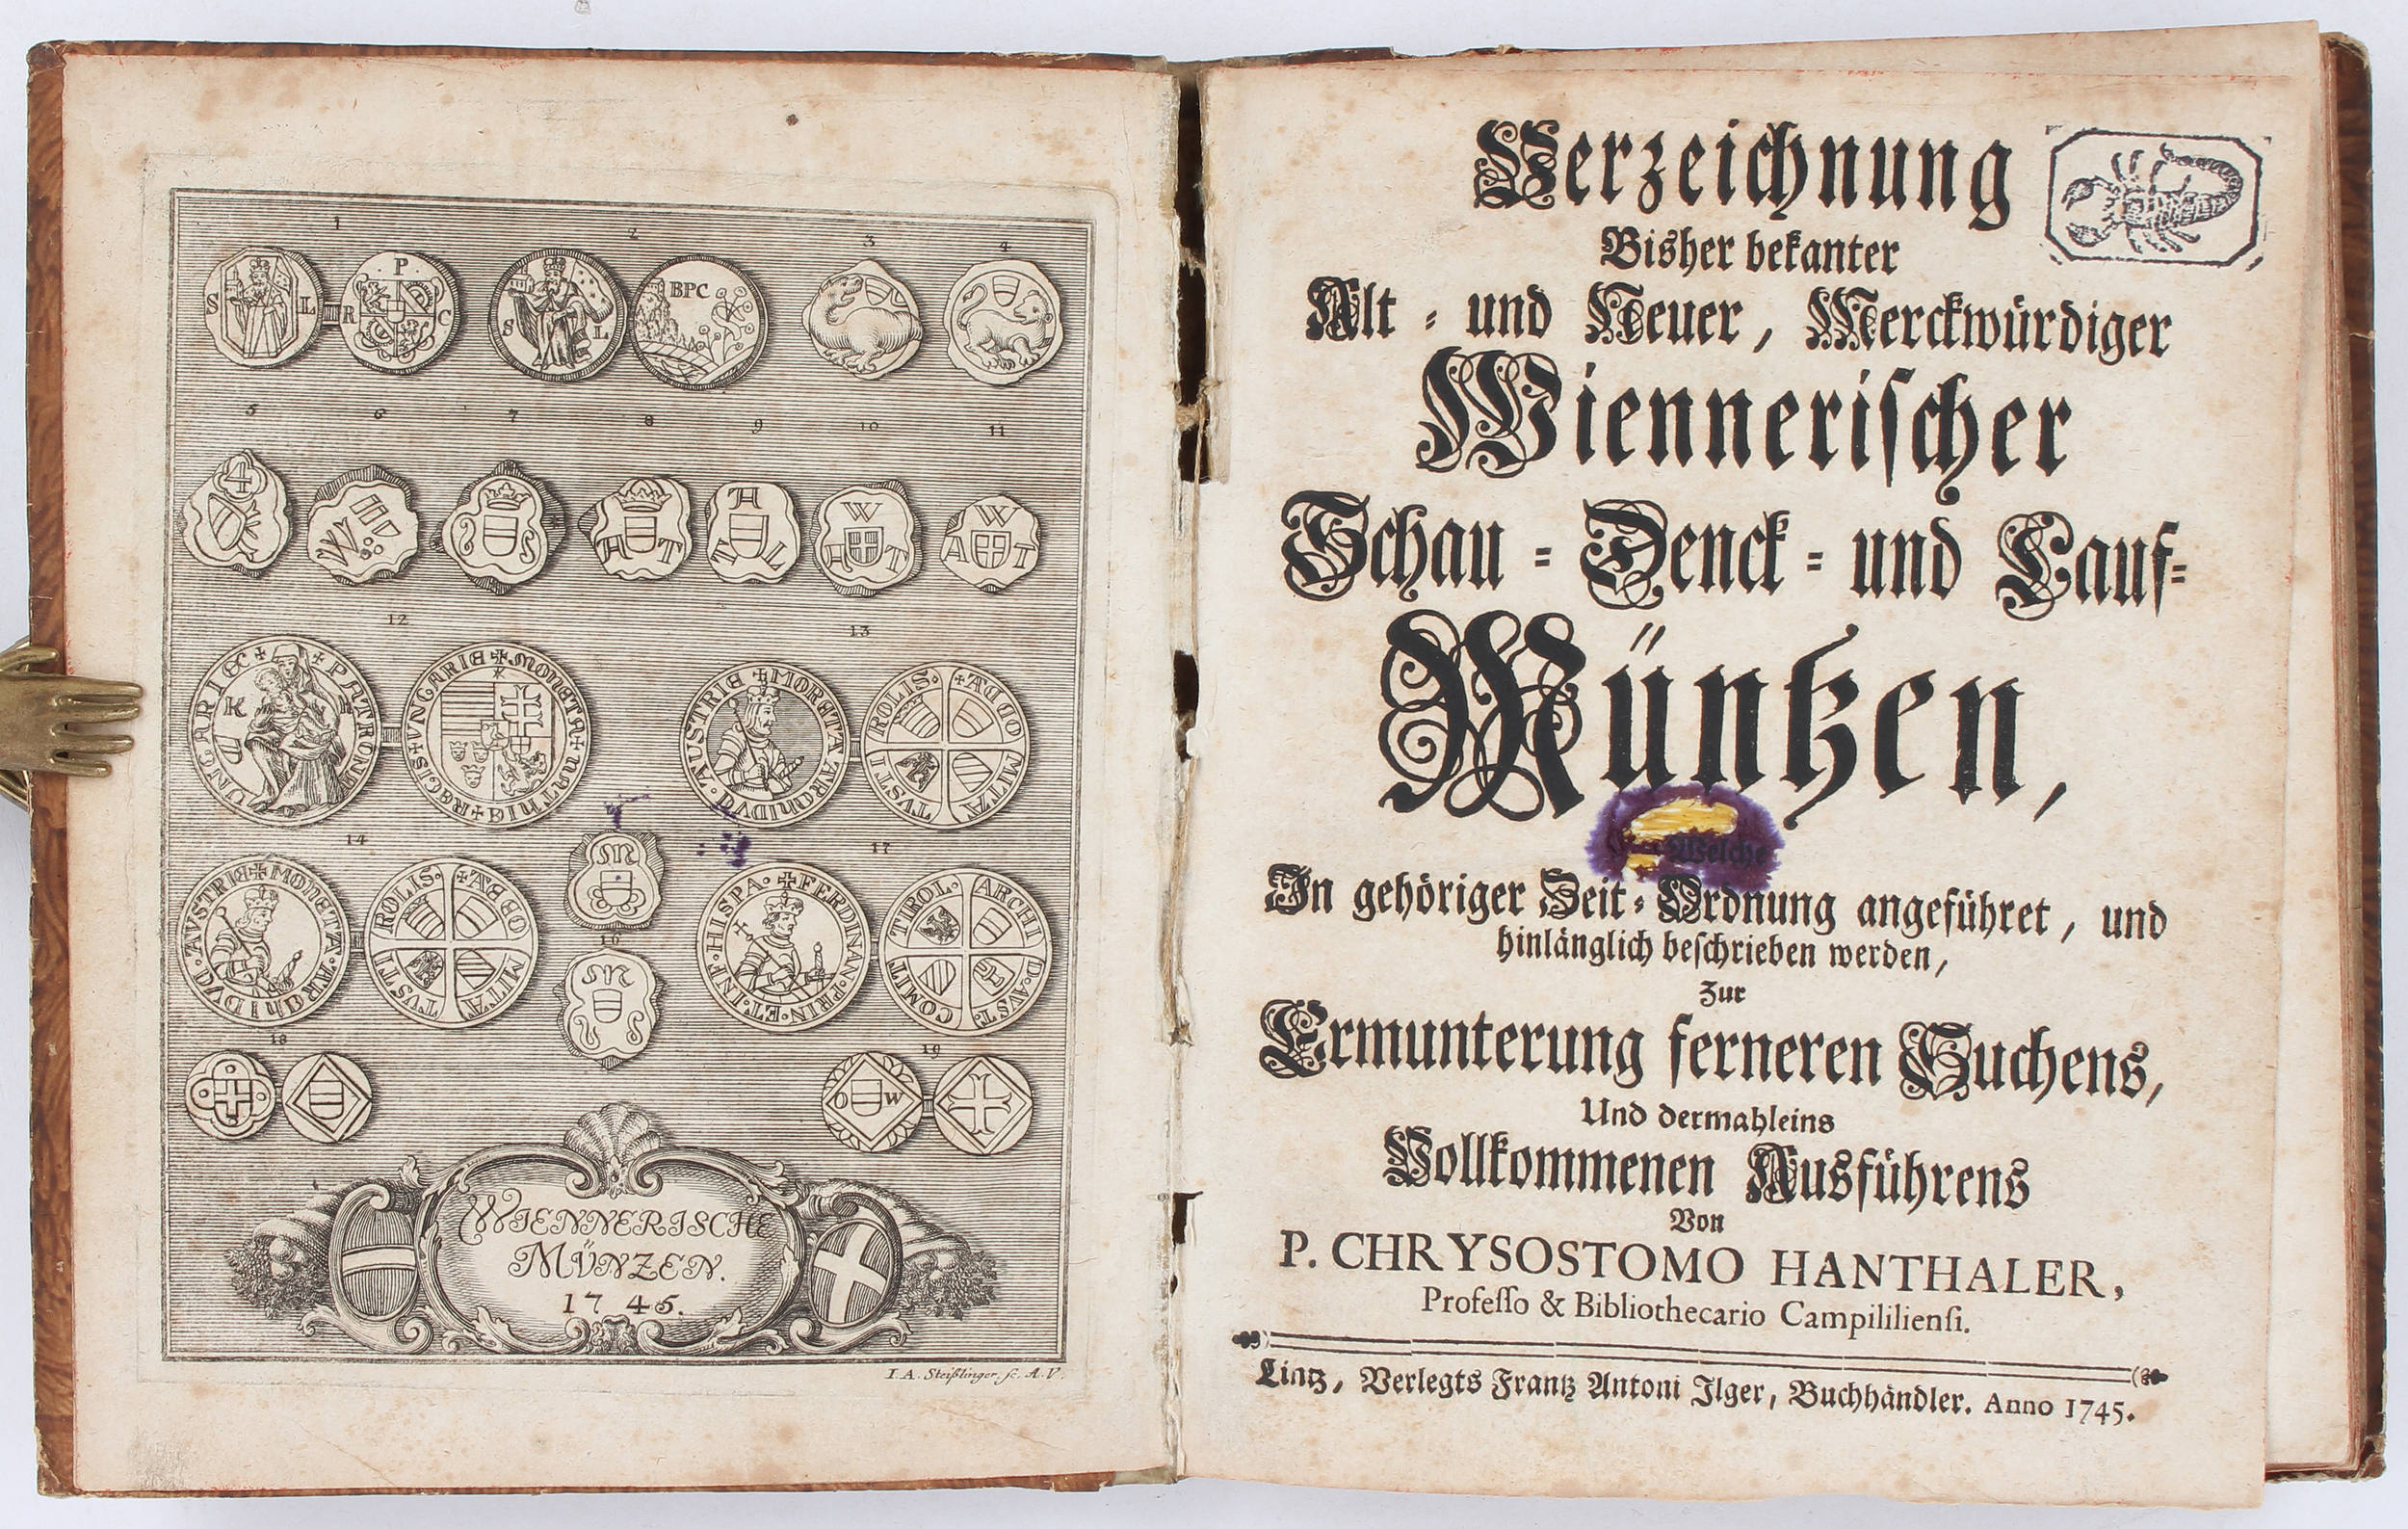 1 2 3 4
S L P R C S L BPC
5 6 7 8 9 10 11
4
W
A T
A
W
A T
W
A T
12 13
K
PATRONA
UNGARIE
MONETA
REGIS UNGARIE
AUSTRIE
ROLIS
14 17
M
AUSTRIE
ROLIS
FERDINAN·PRIN·ET·INF·HISPA·
ARCHID·AVST·
COMIT
TIROL·
16
M
18 19
O W
WIENNERISCHE
MÜNZEN.
1745.
I. A. Steißlinger. sc. A. V.
Verzeichnung
Bisher bekanter
Alt- und Neuer, Merckwürdiger
Wiennerischer
Schau-Denck-und Lauf-
Müntzen,
Welche
In gehöriger Zeit-Ordnung angeführet, und
hinlänglich beschrieben werden,
Zur
Ermunterung ferneren Suchens,
Und dermahleins
Vollkommenen Ausführens
Von
P. CHRYSOSTOMO HANTHALER,
Professo & Bibliothecario Campililiensi.
Lintz, Verlegts Frantz Antoni Ilger, Buchhändler. Anno 1745.